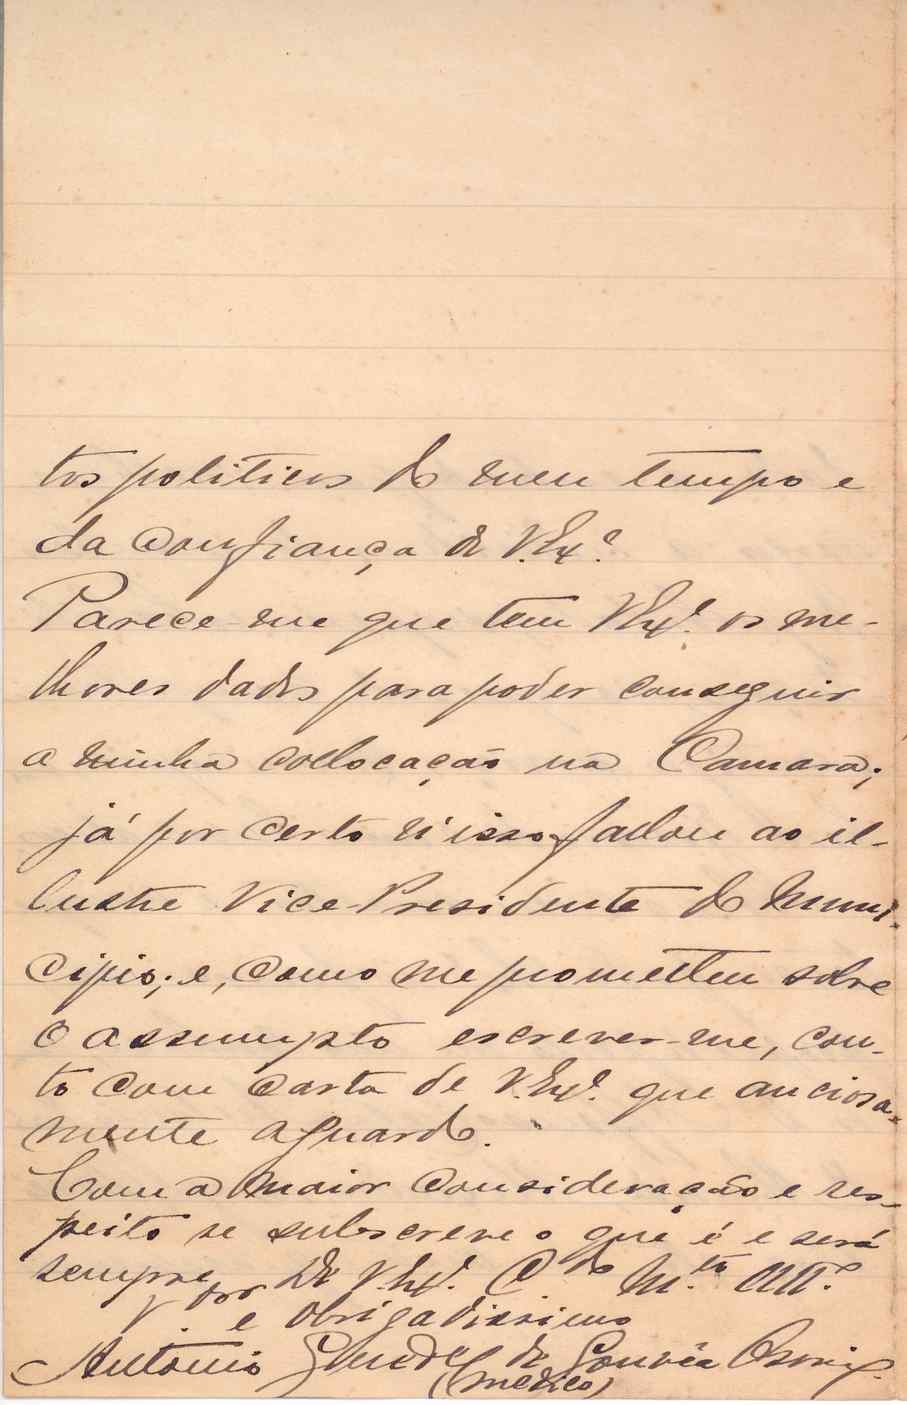 tos politicos do meu tempo e
da confiança de V.Ex.ª
Parece-me que tem V.Ex.ª os me-
lhores dados para poder conseguir
a minha collocação na Camara;
já por certo n'isso fallou ao il-
lustre Vice-Presidente do Muni-
cipio; e, como me prometteu sobre
o assumpto escrever-me, con-
to com carta de V.Ex.ª que anciosa-
mente aguardo.
Com a maior consideração e res-
peito se subscreve o que é e será
sempre De V.Ex.ª C.do M.to Att.º
V.dor e obrigadissimo
Antonio Guedes de Gouvêa Osorio
(medico)